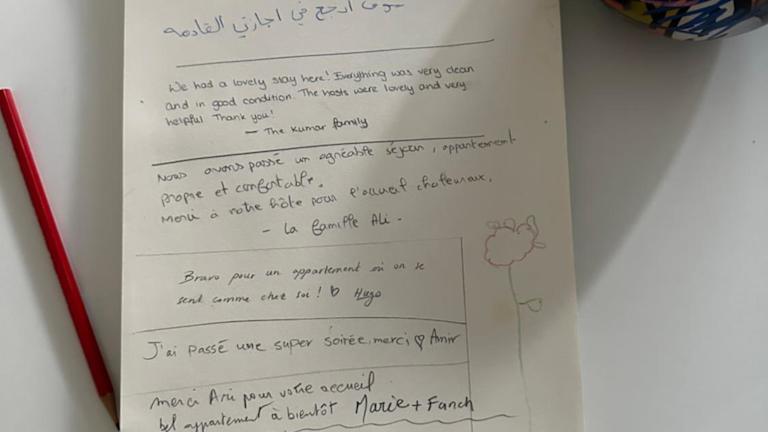 سوف ارجع في اجازتي القادمه
We had a lovely stay here! Everything was very clean
and in good condition. The hosts were lovely and very
helpful Thank you!
— The Kumar family
Nous avons passé un agréable séjour, appartement
propre et confortable.
Merci à notre hôte pour l'accueil chaleureux.
- La famille Ali -
Bravo pour un appartement où on se
sent comme chez soi ! ♡ Hugo
J'ai passé une super soirée, merci ♡ Amir
merci Ari pour votre accueil
bel appartement à bientôt Marie + Fanch